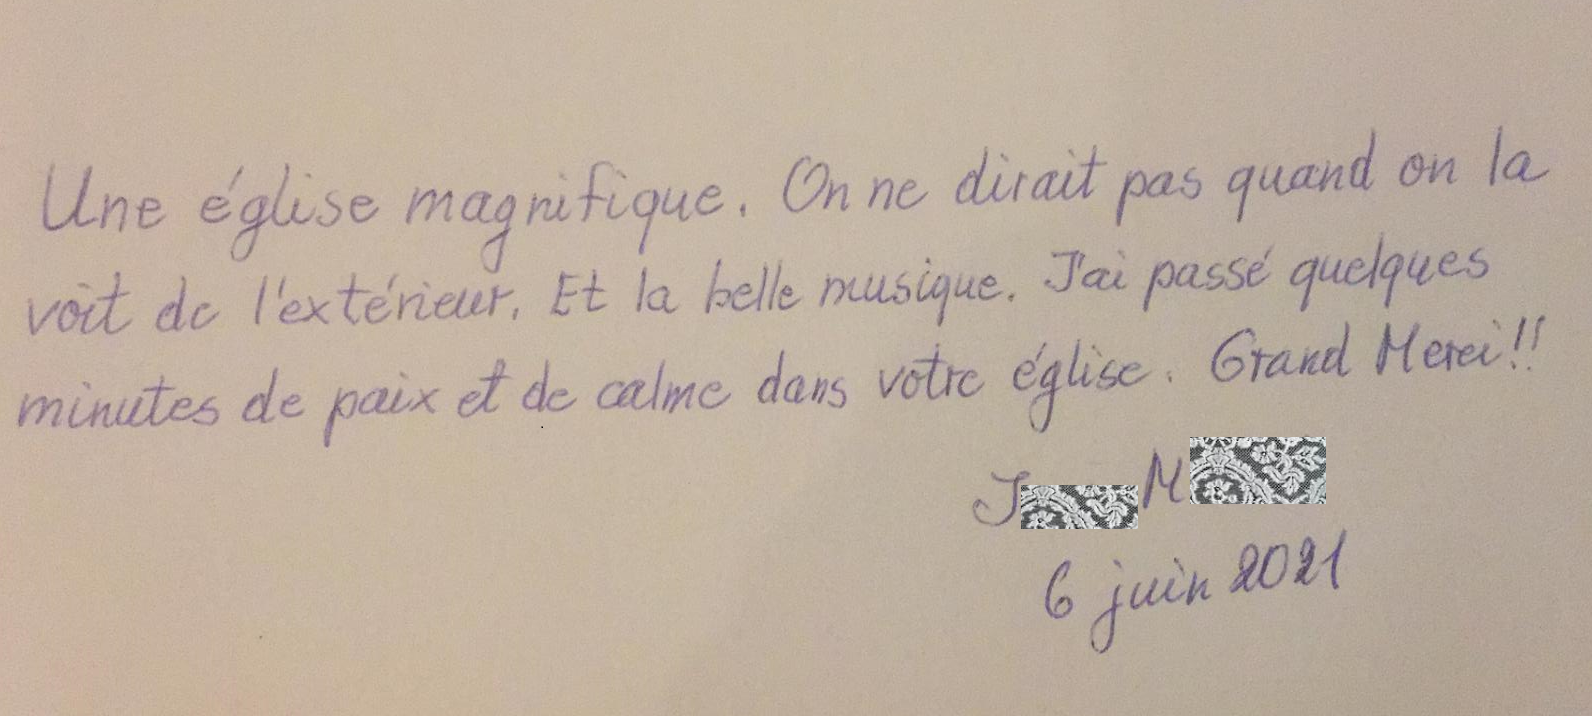 Une église magnifique. On ne dirait pas quand on la
voit de l'extérieur. Et la belle musique. J'ai passé quelques
minutes de paix et de calme dans votre église. Grand Merci!!
J M
6 juin 2021